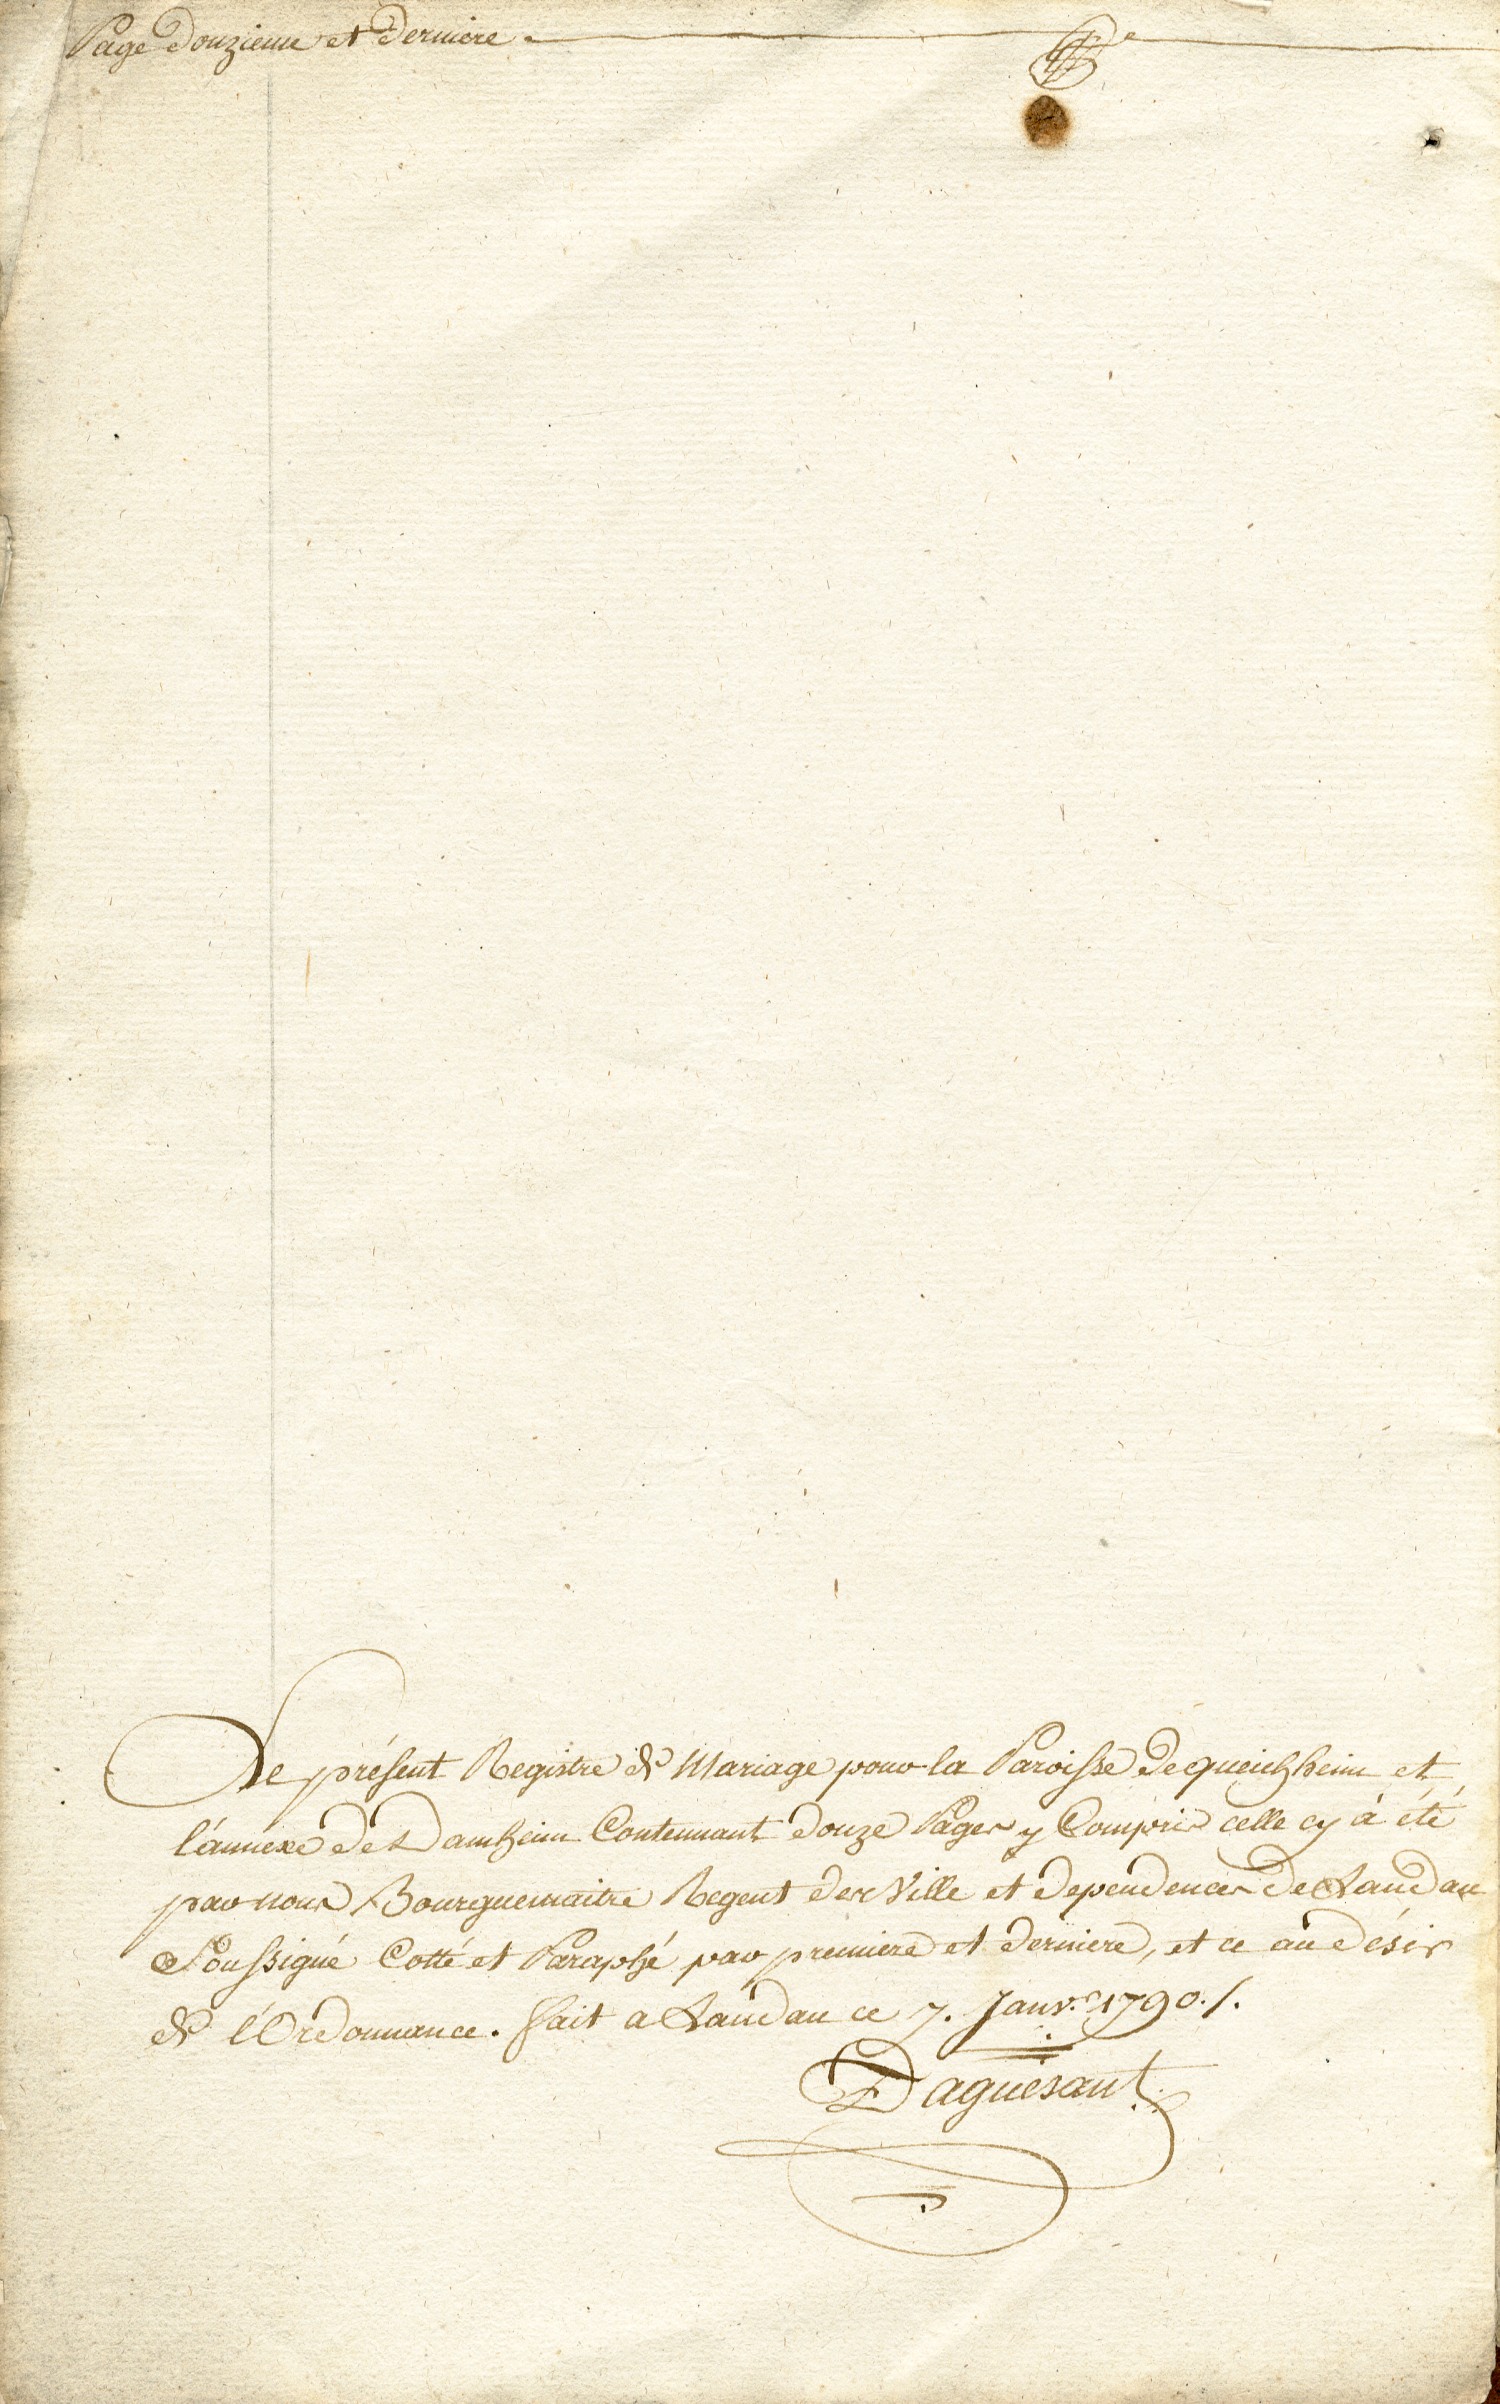 Page Douzieme et Derniere.
Le présent Registre de Mariage pour la Paroisse de queichheim et
l'annexe de Damheim Contennant douze Pages y Compris celle cy à été
par nous Bourguemaitre Regent des Ville et dependences de Landau
Soussigné Cotté et Paraphé par premiere et derniere, et ce au désir
de l'Ordonnance. fait a Landau ce 7. Janv.r 1790./.
Daguesant